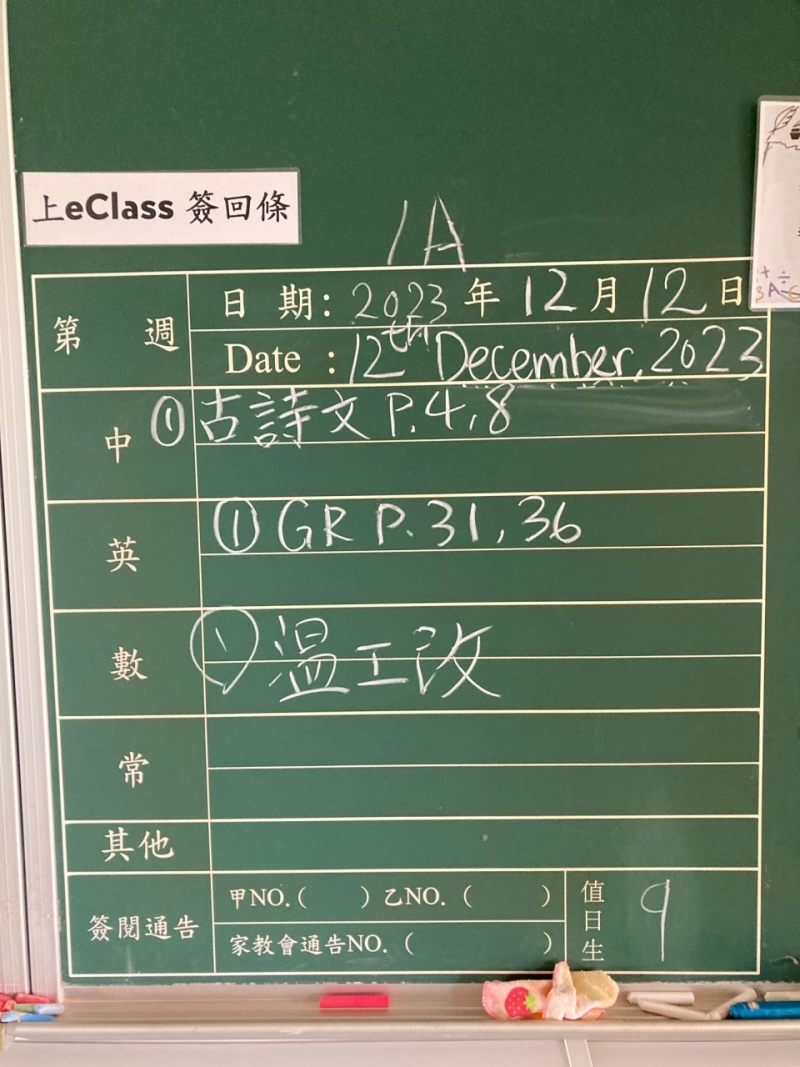 上eClass 簽回條
1A
第 週
日 期: 2023 年 12 月 12 日
Date : 12th December, 2023
中 ① 古詩文 P.4,8
英 ① GR P.31,36
數 ① 温工改
常
其他
簽閱通告
甲NO.( ) 乙NO.( )
家教會通告NO.( )
值日生 9